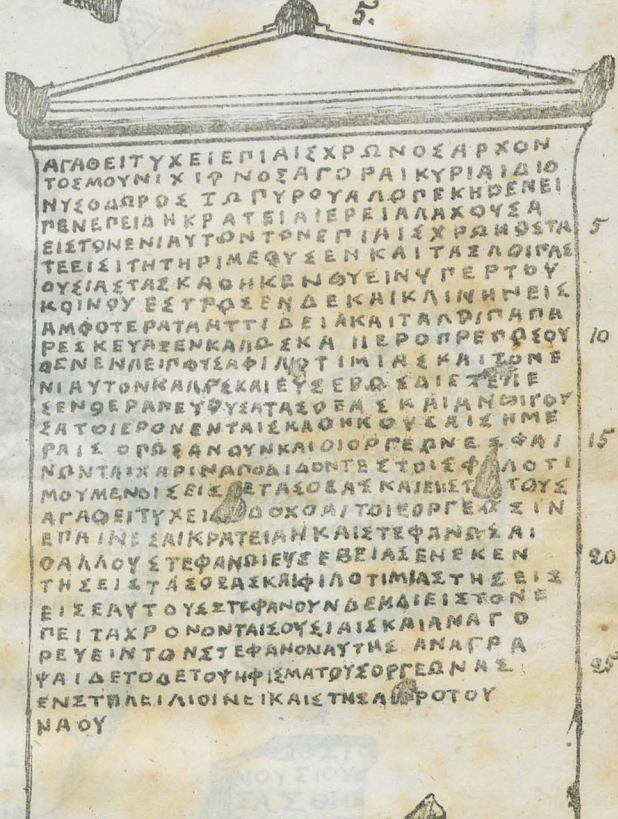 ΑΓΑΘΕΙΤΥΧΕΙΕΠΙΑΙΣΧΡΩΝΟΣΑΡΧΟΝ
ΤΟΣΜΟΥΝΙΧΙΩΝΟΣΑΓΟΡΑΙΚΥΡΙΑΙΔΙΟ
ΝΥΣΟΔΩΡΟΣΖΩΠΥΡΟΥΑΛΩΠΕΚΗΘΕΝΕΙ
ΠΕΝΕΠΕΙΔΗΚΡΑΤΕΙΑΙΕΡΕΙΑΛΑΧΟΥΣΑ
ΕΙΣΤΟΝΕΝΙΑΥΤΟΝΤΟΝΕΠΙΑΙΣΧΡΩΝΟΣΤΑ
ΤΕΕΙΣΙΤΗΤΗΡΙΑΕΘΥΣΕΝΚΑΙΤΑΣΛΟΙΠΑΣ
ΘΥΣΙΑΣΤΑΣΚΑΘΗΚΕΝΘΥΕΙΝΥΠΕΡΤΟΥ
ΚΟΙΝΟΥΕΣΤΡΩΣΕΝΔΕΚΑΙΚΛΙΝΗΝΕΙΣ
ΑΜΦΟΤΕΡΑΤΑΑΤΤΙΔΕΙΑΚΑΙΤΑΛΟΙΠΑΠΑ
ΡΕΣΚΕΥΑΣΕΝΚΑΛΩΣΚΑ ΙΕΡΟΠΡΕΠΩΣΟΥ
ΘΕΝΕΝΛΕΙΠΟΥΣΑΦΙΛΟΤΙΜΙΑΣΚΑΙΤΟΝΕ
ΝΙΑΥΤΟΝΚΑΛΩΣΚΑΙΕΥΣΕΒΩΣΔΙΕΤΕΛΕ
ΣΕΝΘΕΡΑΠΕΥΟΥΣΑΤΑΣΘΕΑΣΚΑΙΑΝΟΙΓΟΥ
ΣΑΤΟΙΕΡΟΝΕΝΤΑΙΣΚΑΘΗΚΟΥΣΑΙΣΗΜΕ
ΡΑΙΣΟΠΩΣΑΝΟΥΝΚΑΙΟΙΟΡΓΕΩΝΕΣΦΑΙ
ΝΩΝΤΑΙΧΑΡΙΝΑΠΟΔΙΔΟΝΤΕΣΤΟΙΣΦΙΛΟΤΙ
ΜΟΥΜΕΝΟΙΣΕΙΣ ΕΤΑΣΘΕΑΣΚΑΙΕΙΣΤ ΤΟΥΣ
ΑΓΑΘΕΙΤΥΧΕΙ ΔΟΧΘΑΙΤΟΙΣΟΡΓΕΩΣΙΝ
ΕΠΑΙΝΕΣΑΙΚΡΑΤΕΙΑΝΚΑΙΣΤΕΦΑΝΩΣΑΙ
ΘΑΛΛΟΥΣΤΕΦΑΝΩΙΕΥΣΕΒΕΙΑΣΕΝΕΚΕΝ
ΤΗΣΕΙΣΤΑΣΘΕΑΣΚΑΙΦΙΛΟΤΙΜΙΑΣΤΗΣΕΙΣ
ΕΙΣΕΑΥΤΟΥΣΣΤΕΦΑΝΟΥΝΔΕΚΑΙΕΙΣΤΟΝΕ
ΠΕΙΤΑΧΡΟΝΟΝΤΑΙΣΘΥΣΙΑΙΣΚΑΙΑΝΑΓΟ
ΡΕΥΕΙΝΤΟΝΣΤΕΦΑΝΟΝΑΥΤΗΣΑΝΑΓΡΑ
ΨΑΙΔΕΤΟΔΕΤΟΨΗΦΙΣΜΑΤΟΥΣΟΡΓΕΩΝΑΣ
ΕΝΣΤΗΛΕΙΛΙΘΙΝΕΙΚΑΙΣΤΗΣΑΙ ΡΟΤΟΥ
ΝΑΟΥ
5.
5
10
15
20
25